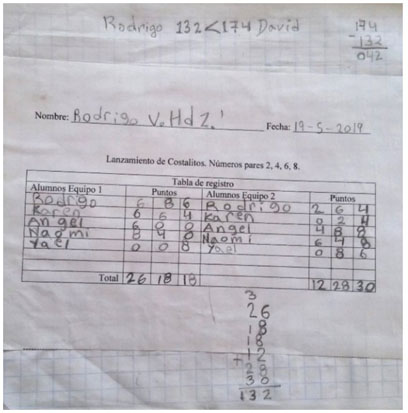 Rodrigo 132<174 David
174
-132
042
Nombre: Rodrigo V. Hdz. Fecha: 19-5-2019
Lanzamiento de Costalitos. Números pares 2, 4, 6, 8.
Tabla de registro
Alumnos Equipo 1 Puntos Alumnos Equipo 2 Puntos
Rodrigo 6 8 6 Rodrigo 2 6 4
Karen 6 6 4 Karen 0 2 4
Angel 6 0 0 Angel 4 8 8
Naomi 8 4 0 Naomi 6 4 8
Yael 0 0 8 Yael 0 8 6
Total 26 18 18 12 28 30
3
26
18
18
+12
28
30
132